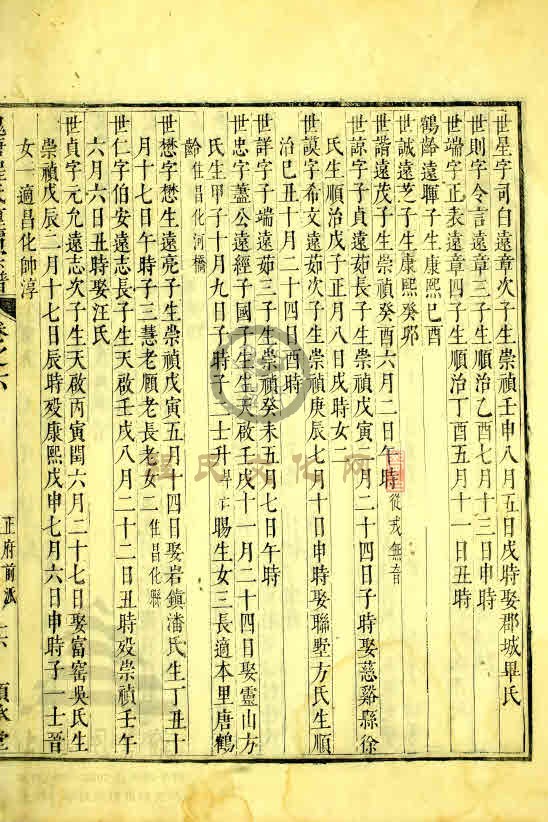 世星字可白遠章次子生崇禎壬申八月五日戌時娶郡城畢氏
世則字令言遠章三子生順治乙酉七月十三日申時
世端字正表遠章四子生順治丁酉五月十一日丑時
鶴齡遠暉子生康熙己酉
世誠遠芝子生康熙癸卯
世諧遠茂子生崇禎癸酉六月二日午時從戎無音
世諒字子貞遠茹長子生崇禎戊寅一月二十四日子時娶慈谿縣徐
氏生順治戊子正月八日戌時女二
世謨字希文遠茹次子生崇禎庚辰七月十日申時娶聯墅方氏生順
治己丑十月二十四日酉時
世詳字子端遠茹三子生崇禎癸未五月七日午時
世忠字藎公遠經子國子生生天啟壬戌十一月二十四日娶靈山方
氏生甲子十月九日子時子二士升士賜生女三長適本里唐鶴
齡住昌化河橋
世懋字懋生遠亮子生崇禎戊寅五月十四日娶岩鎮潘氏生丁丑十
月十七日午時子三慧老願老長老女二住昌化縣
世仁字伯安遠志長子生天啟壬戌八月二十二日丑時歿崇禎壬午
六月六日丑時娶汪氏
世貞字元允遠志次子生天啟丙寅閏六月二十七日娶富窑吳氏生
崇禎戊辰二月十七日辰時歿康熙戊申七月六日申時子一士晉
女一適昌化帥淳
卷之六
正府前派